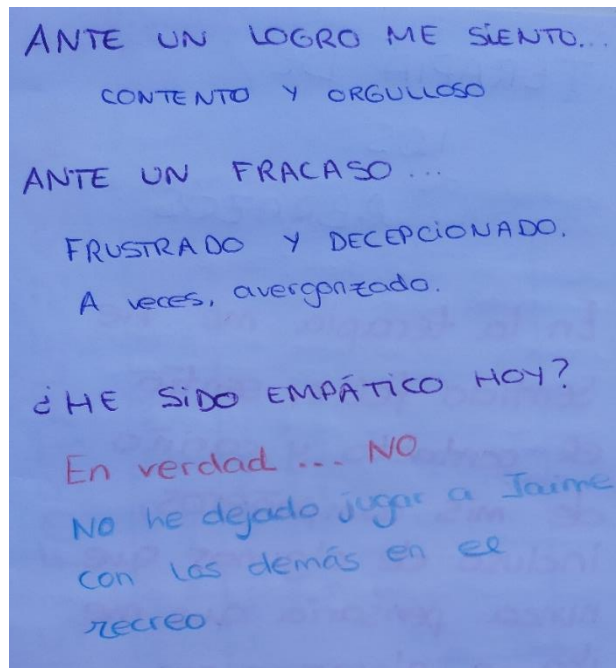 ANTE UN LOGRO ME SiENTO...
CONTENTO Y ORGULLOSO
ANTE UN FRACASO...
FRUSTRADO Y DECEPCiONADO.
A veces, avergonzado.
¿HE SiDO EMPÁTiCO HOY?
En verdad... NO
NO he dejado jugar a Jaime
con los demás en el
recreo